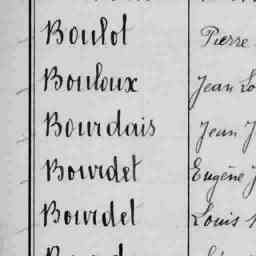 Boulot Pierre
Bouloux Jean
Bourdais Jean
Bourdet Eugène
Bourdel Louis